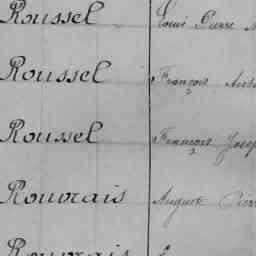 Roussel Louis Pierre
Roussel François
Roussel François Josep
Rouvrais Auguste Pier
Rouvrais